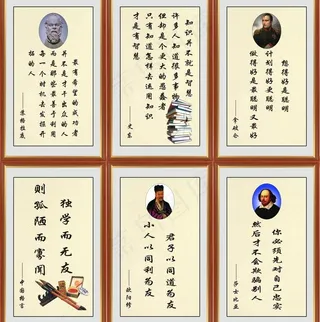 最有希望的成功者
并不是才干出众的人
而是那些最善于利用
每一个时机去发掘开
拓的人
—苏格拉底
知识并不就是智慧
许多人知道很多事物
但却是个更大的愚蠢者
只有知道怎样去运用知识
才是有智慧
—史东
想得好是聪明
计划得好是更聪明
做得好是最聪明又最好
—拿破仑
独学而无友
则孤陋而寡闻
—中国格言
君子以同道为友
小人以同利为友
—欧阳修
你必须先对自己忠实
然后才不会欺骗别人
—莎士比亚